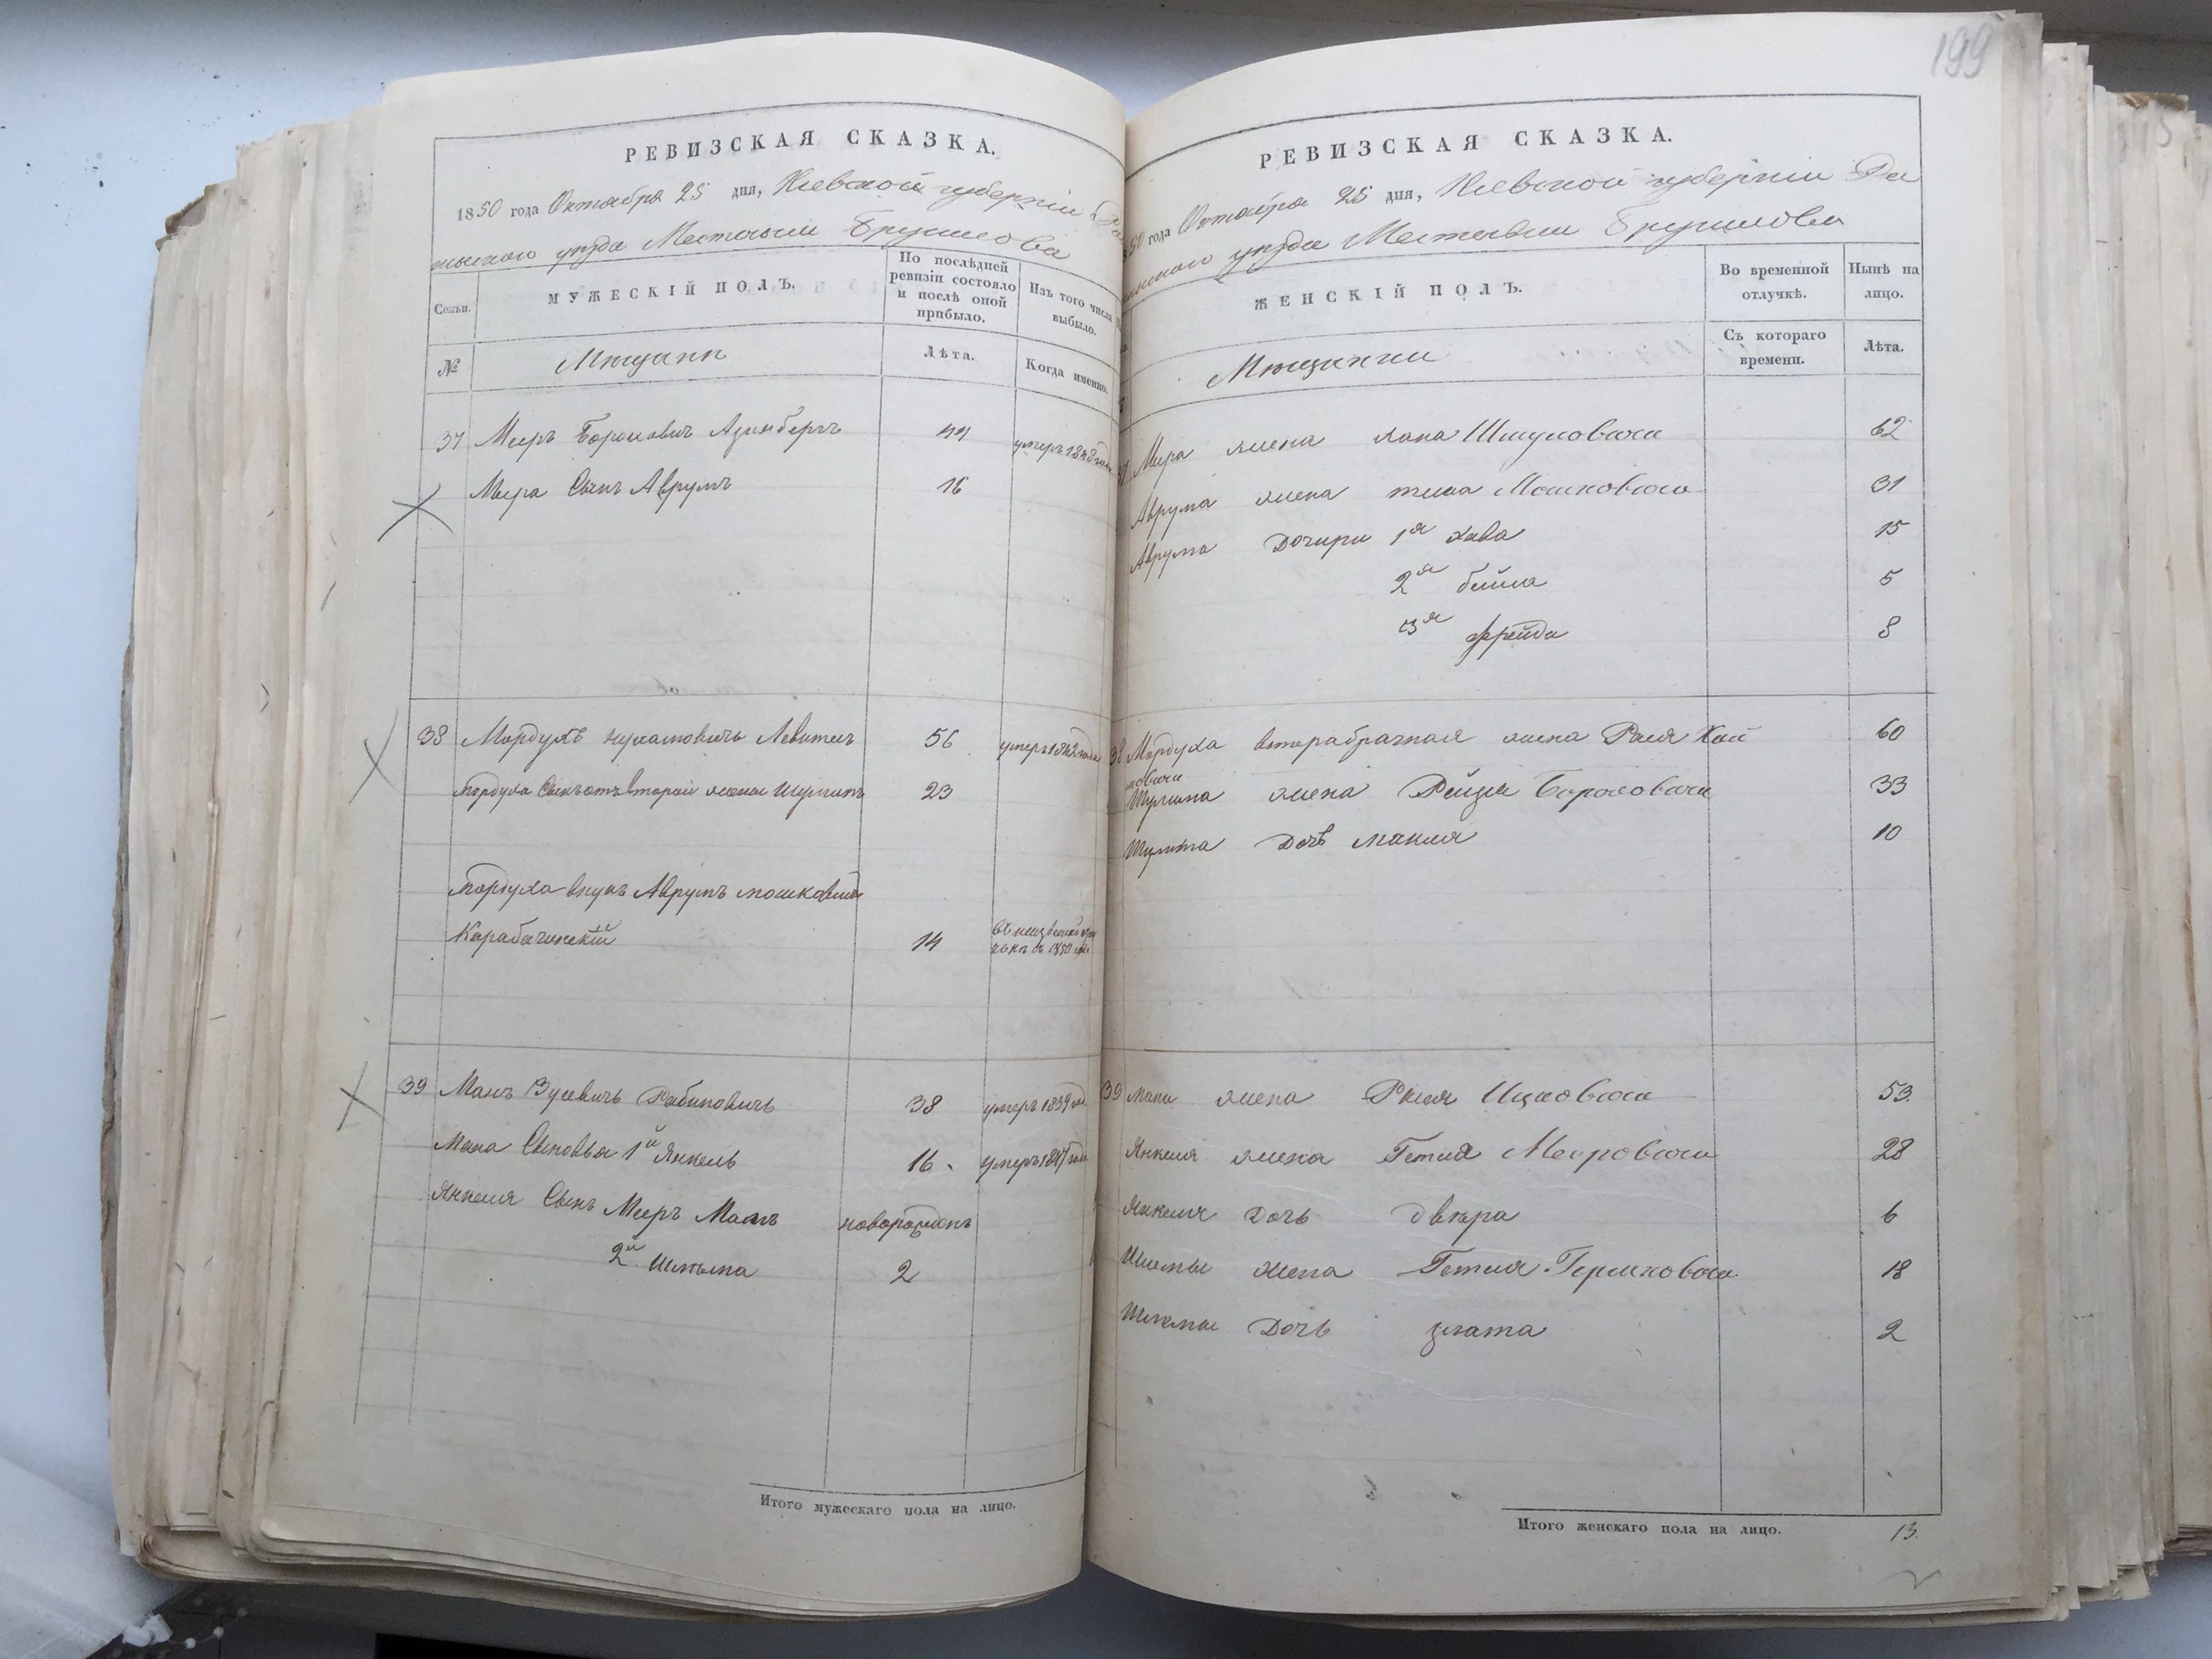 РЕВИЗСКАЯ СКАЗКА.
1850 года Октября 25 дня, Киевской губерніи Ра
мысского уезда Местечки Брусилова
Семьи.
МУЖЕСКІЙ ПОЛЪ.
По послѣдней ревизіи состояло и послѣ оной прибыло.
Изъ того числа выбыло.
№
Мещане
Лѣта.
Когда именно.
37 Мееръ Борохович 44 умеръ 1848 года
Меера Сынъ Аврумъ 16
38 Мордухъ Левитъ 56 умеръ 1842 года
Мордуха Сынъ отъ второй жены 23
Мордуха внукъ Аврумъ мошковичъ
Карабачинскій 14 1850 года
39 Манъ Зусевичъ Рабиновичъ 38 умеръ 1839 года
Мана Сыновья 1й Янкель 16 умеръ 1847 года
Янкеля Сынъ Мееръ Манъ новорожденъ
2й Шлёма 2
Итого мужескаго пола на лицо.
199
РЕВИЗСКАЯ СКАЗКА.
1850 года Октября 25 дня, Киевской губерніи Ра
уезда Местечки Брусилова
ЖЕНСКІЙ ПОЛЪ.
Во временной отлучкѣ.
Нынѣ на лицо.
Мещанки
Съ котораго времени.
Лѣта.
37 Меера жена хана Шмуловна 62
Аврума жена Мошковна 31
Аврума Дочери 1я хава 15
2я бейла 5
3я фрейда 8
38 Мордуха вторабрачная жена Рася Хай
мовна 60
жена Рейзя Бороховна 33
Дочь 10
39 Мана жена Рися Ицковна 53.
Янкеля жена Гетля Мееровна 28
Янкеля Дочь двера 6
Шлемы жена Гетля Гершковна 18
Шлемы Дочь злата 2
Итого женскаго пола на лицо. 13.